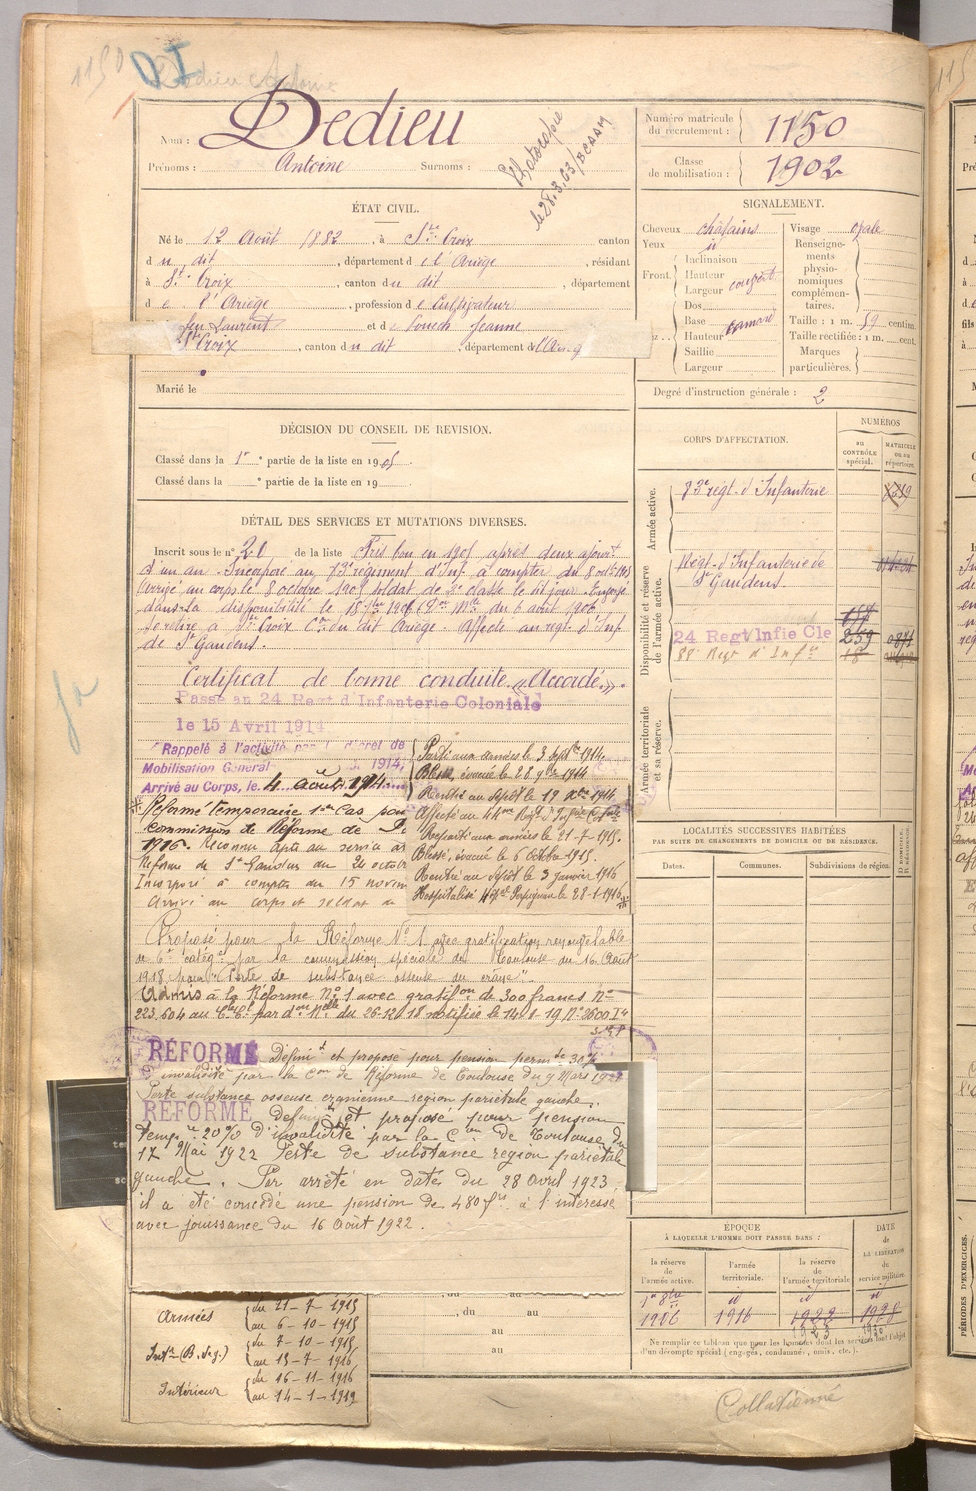 1150
DI
Dedieu Antoine
Nom : Dedieu
Prénoms : Antoine Surnoms :
Photocopie
le 28.3.63/BCAAM
Numéro matricule du recrutement : 1150
Classe de mobilisation : 1902
ÉTAT CIVIL.
Né le 12 Août 1882, à Ste Croix canton
du dit, département de l'Ariège, résidant
à Ste Croix, canton du dit, département
de l'Ariège, profession de Cultivateur
feu Laurent et de Souech Jeanne
Ste Croix, canton du dit, département de l'Arièg
Marié le
SIGNALEMENT.
Cheveux châtains
Yeux id
Front. Inclinaison
Hauteur
Largeur
Dos
Base
Hauteur
Saillie
Largeur
Visage ovale
Renseignements physionomiques complémentaires.
Taille : 1 m. 59 centim.
Taille rectifiée : 1 m. cent.
Marques particulières.
Degré d'instruction générale : 2
DÉCISION DU CONSEIL DE REVISION.
Classé dans la 1re partie de la liste en 1905.
Classé dans la ° partie de la liste en 19
CORPS D'AFFECTATION.
NUMÉROS
au CONTRÔLE spécial.
MATRICULE ou au répertoire.
Armée active.
83e régt. d'Infanterie
Disponibilité et réserve de l'armée active.
Régt. d'Infanterie de
St Gaudens
24 Regt Infie Cle 259
Armée territoriale et sa réserve.
DÉTAIL DES SERVICES ET MUTATIONS DIVERSES.
Inscrit sous le n° 20 de la liste Pris bon en 1905 après deux ajourt
d'un an. Incorporé au 83e régiment d'Inf. à compter du 8 octe 1905
Arrivé au corps le 8 octobre 1905 soldat de 2e classe le dit jour. Envoyé
dans la disponibilité le 18 7bre 1906
Se retire à Ste Croix Cton du dit Ariège. Affecté au regt. d'Inf
de St Gaudens.
Certificat de bonne conduite « Accordé ».
Passé au 24 Regt d'Infanterie Coloniale
le 15 Avril 1914
Rappelé à l'activité par décret de
Mobilisation Général 1914,
Arrivé au Corps, le 4 août 1914
Parti aux armées le 3 Septbre 1914
Blessé, évacué le 28 9bre 1914
Rentré au dépôt le 19 Xbre 1914
Affecté au 44me Régt d'Infie Cole
Reparti aux armées le 21-7-1915.
Blessé, évacué le 6 Octobre 1915.
Rentré au dépôt le 3 janvier 1916
Hospitalisé Perpignan le 28-1-1916
Réformé temporaire 1er Cas par
commission de Réforme de Pe
1916. Reconnu apte au service
Réforme de St Gaudens du 24 octobr
Incorporé à compter du 15 novem
Arrivé au corps et soldat de
Proposé pour la Réforme N° 1 avec gratification renouvelable
de 6e catége par la commission spéciale de Toulouse du 16 Août
1918 pour "Perte de substance osseuse du crâne".
Admis à la Réforme N° 1 avec gratifon de 300 francs N°
223.604
RÉFORMÉ Définit et proposé pour pension permte 30%
d'invalidité par la Con de Réforme de Toulouse du 9 Mars
Perte substance osseuse cranienne region pariétale gauche.
RÉFORMÉ définit et proposé pour pension
temp. re 20% d'invalidité par la Con de Toulouse du
17 Mai 1922 Perte de substance region pariétale
gauche. Par arrêté en date du 28 avril 1923
il a été concédé une pension de 480 frs à l'intéressé
avec jouissance du 16 Août 1922.
LOCALITÉS SUCCESSIVES HABITÉES
PAR SUITE DE CHANGEMENTS DE DOMICILE OU DE RÉSIDENCE.
Dates. Communes. Subdivisions de région. D DOMICILE. R RÉSIDENCE.
Armées du 21-7-1915
au 6-10-1915
Intr (B. de g.) du 7-10-1915
au 13-7-1916
Intérieur du 16-11-1916
au 14-1-1919
, du au
au
au
ÉPOQUE
À LAQUELLE L'HOMME DOIT PASSER DANS :
la réserve de l'armée active.
l'armée territoriale.
la réserve de l'armée territoriale
DATE de LA LIBÉRATION du service militaire.
1er 8bre 1906
id 1916
id 1922
id 1928
Ne remplir ce tableau que pour les hommes dont les services font l'objet
d'un décompte spécial (engagés, condamnés, omis, etc.).
Collationné
PÉRIODES D'EXERCICES.